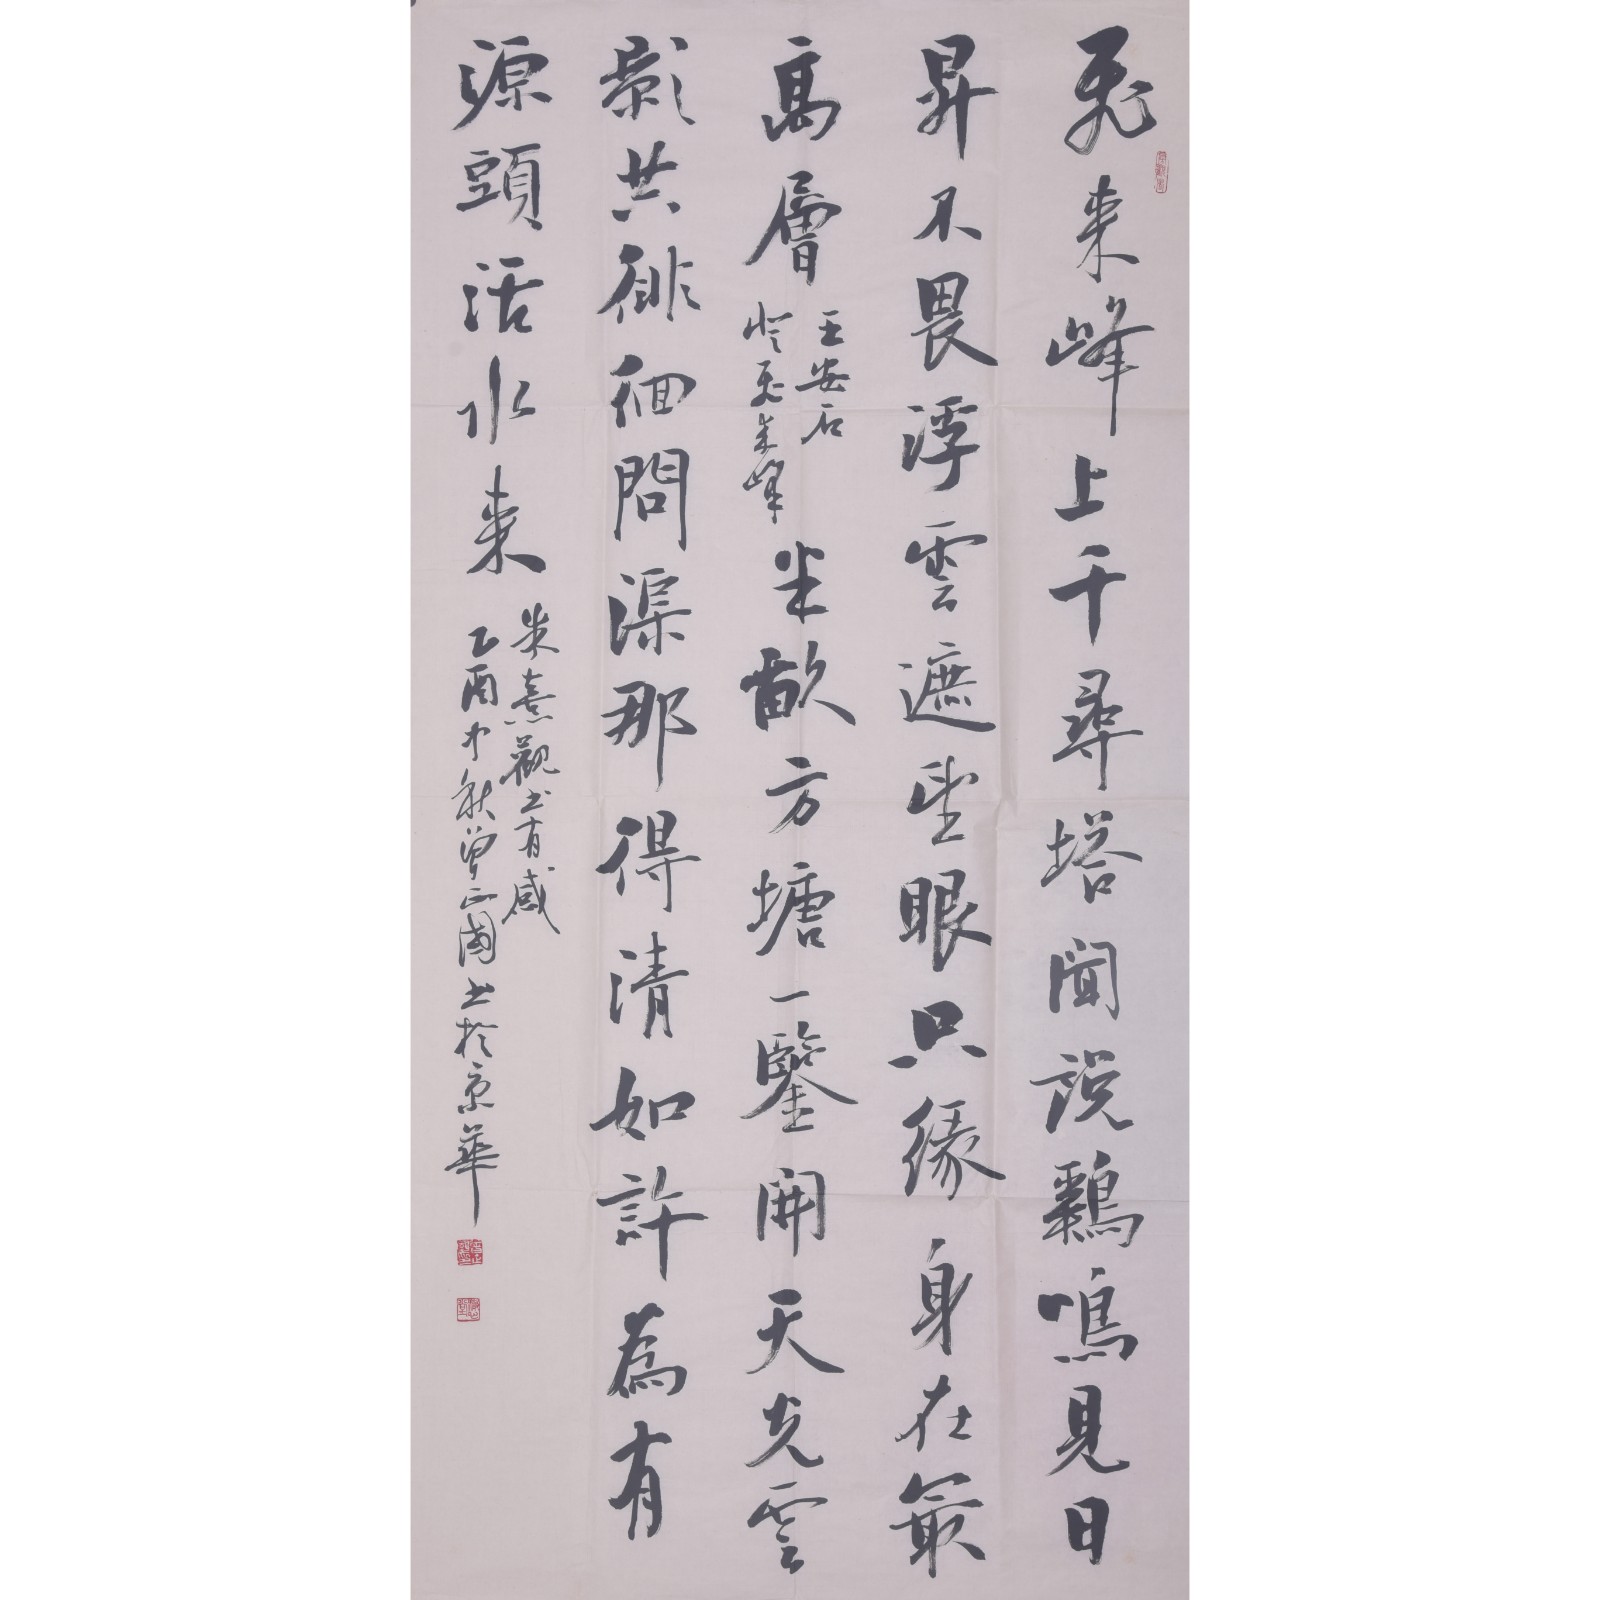 飛来峰上千尋塔聞説鷄鳴見日
昇不畏浮雲遮望眼只緣身在最
高層
王安石
登飛来峰
半畝方塘一鑒開天光雲
影共徘徊問渠那得清如許為有
源頭活水来
朱熹觀書有感
乙酉中秋曾正國書於京華